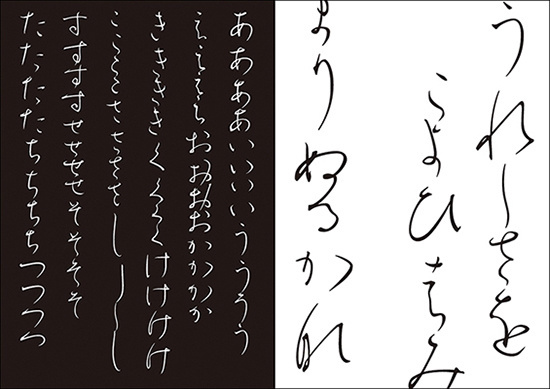 うれしさを
こよひはみ
まりぬるかな
ああああいいいいうううう
ええええおおおおかかかか
ききききくくくくけけけけ
ここここささささしししし
すすすすせせせせそそそそ
たたたたちちちちつつつつ